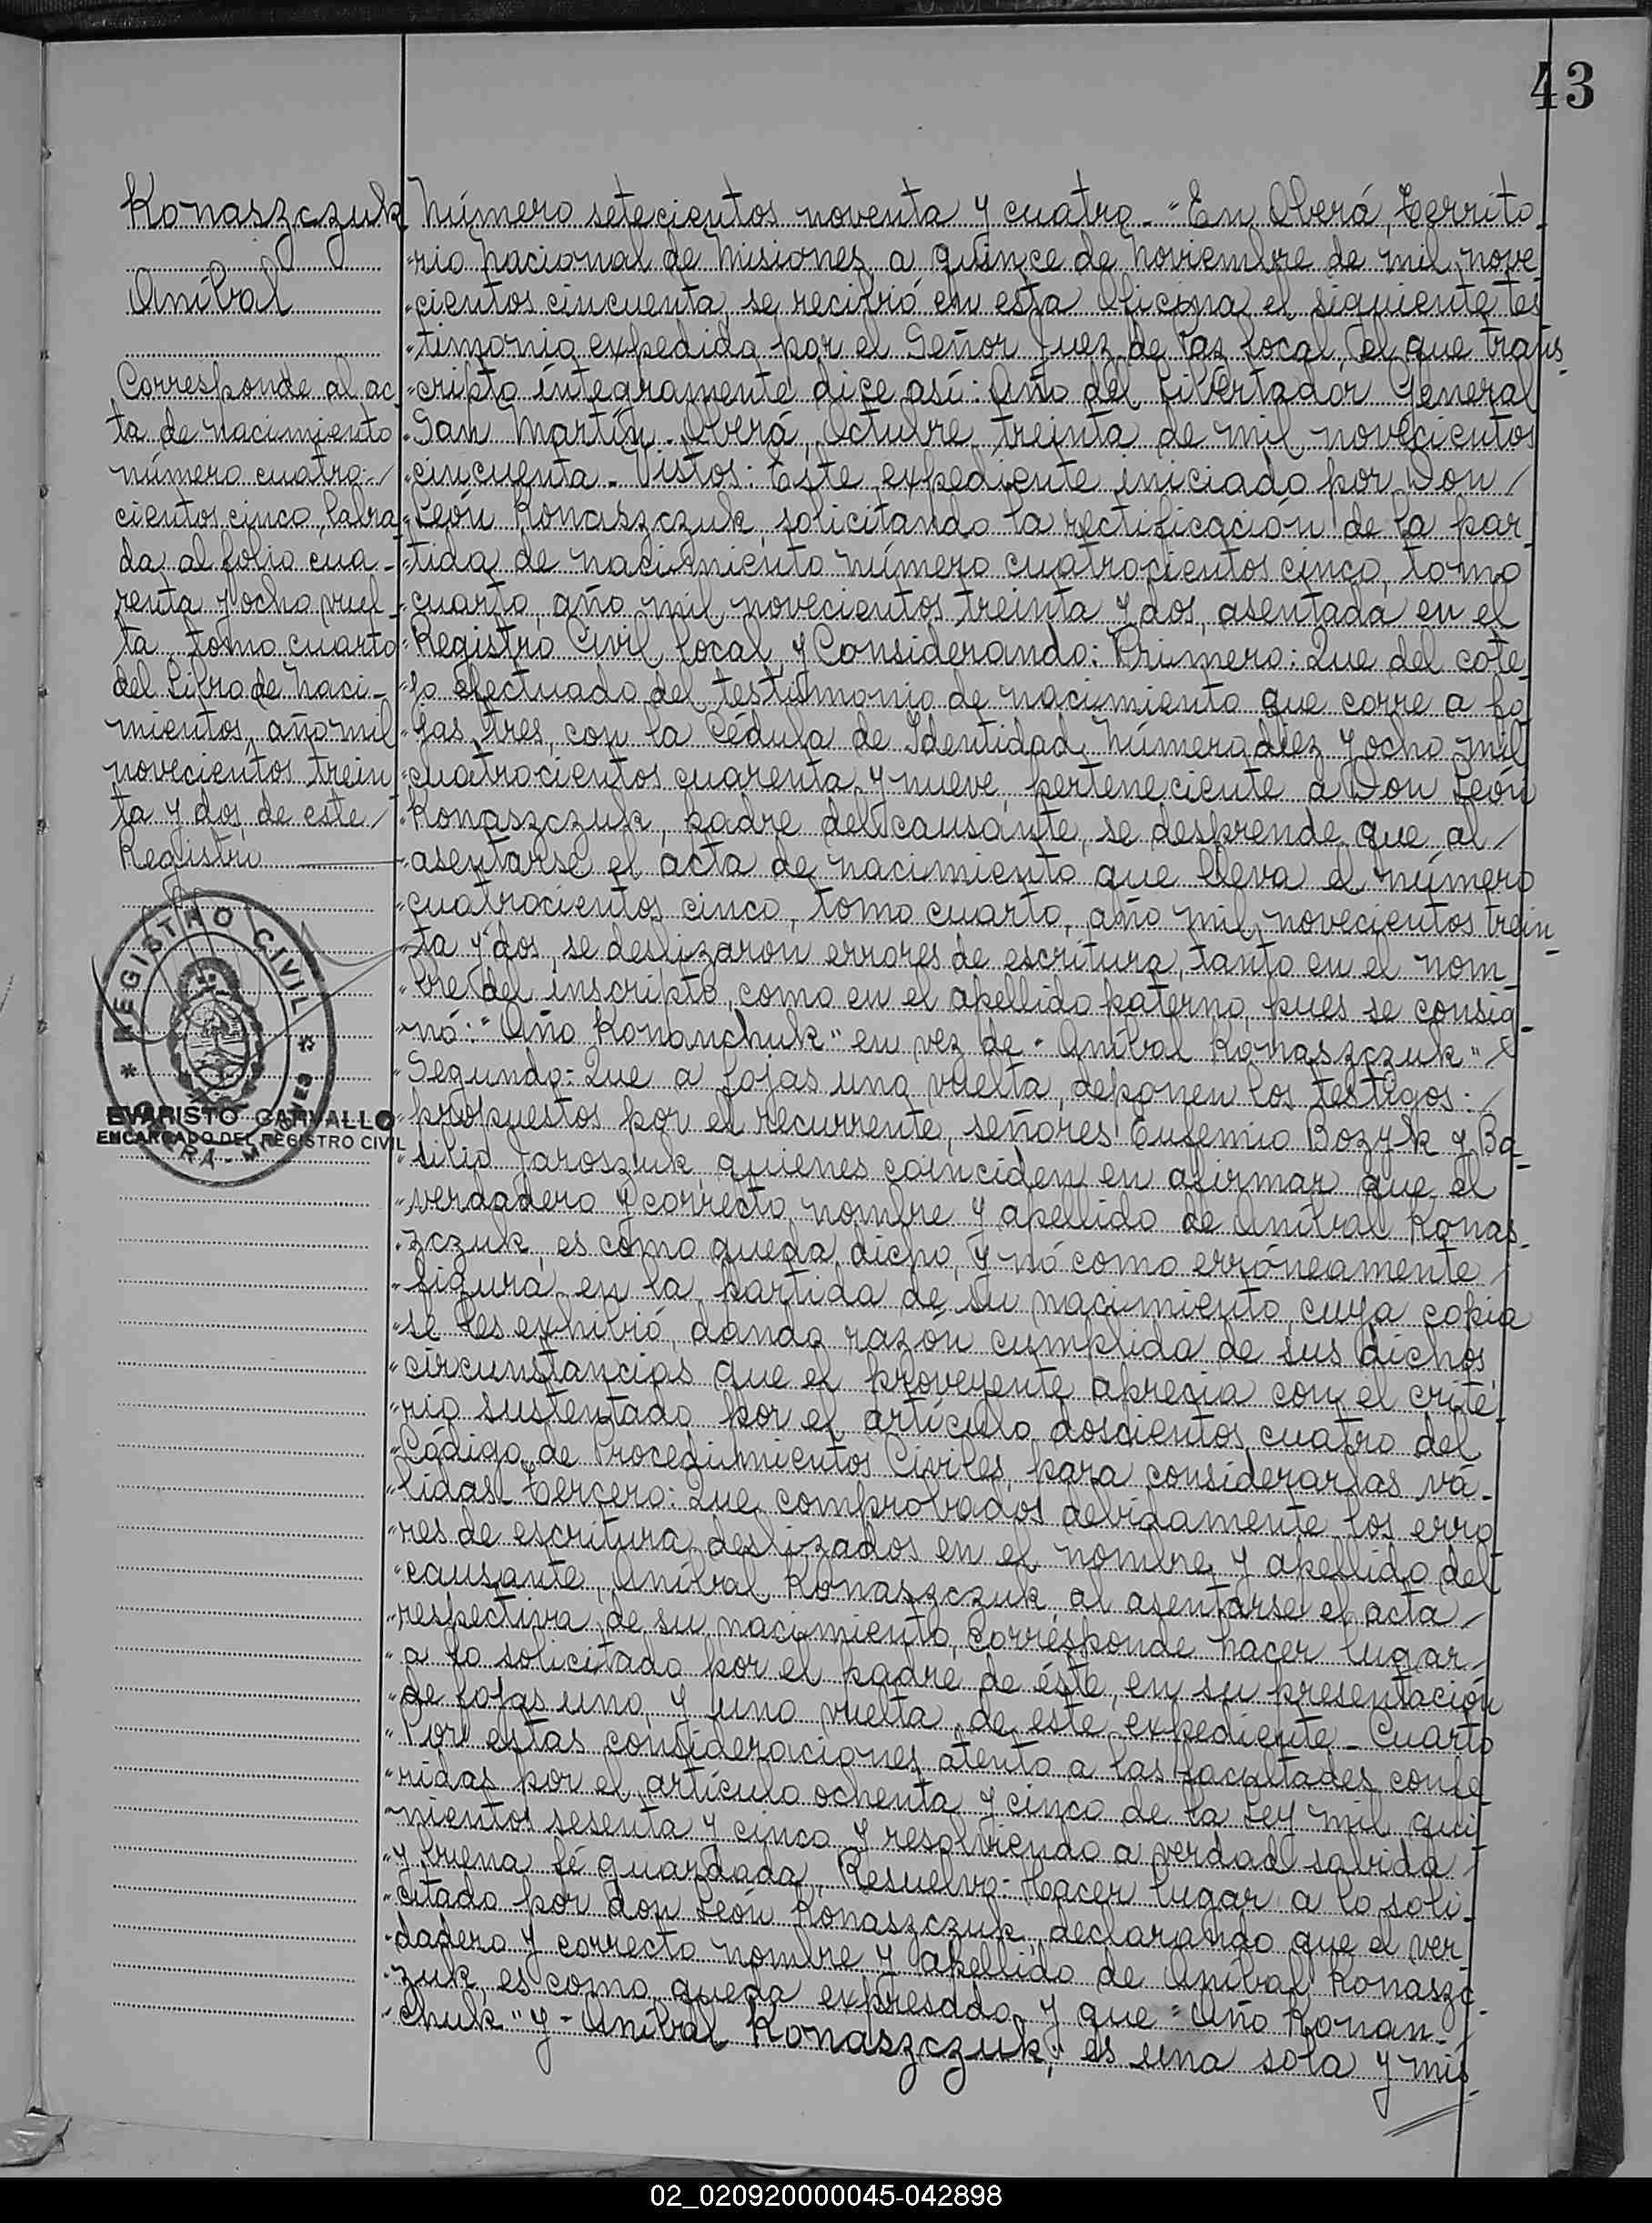 43
Konaszczuk
Aníbal
Corresponde al ac-
ta de nacimiento
número cuatro-/
cientos cinco, labra
da al folio cua-
renta y ocho vuel-
ta, tomo cuarto
del Libro de Naci-
mientos, año mil
novecientos trein
ta y dos, de este/
Registro
REGISTRO CIVIL
OBERA - MISIONES
EVARISTO CARVALLO
ENCARGADO DEL REGISTRO CIVIL
Número setecientos noventa y cuatro.-"En Oberá, Territo-
"rio Nacional de Misiones, a quince de Noviembre de mil nove
"cientos cincuenta, se recibió en esta Oficina el siguiente tes
"timonio expedido por el Señor Juez de Paz local, el que trans-
"cripto íntegramente dice así: Año del Libertador General
"San Martín. Oberá, Octubre treinta de mil novecientos
"cincuenta.- Vistos: Este expediente iniciado por Don/
"León Konaszczuk, solicitando la rectificación de la par-
"tida de nacimiento número cuatrocientos cinco, tomo
"cuarto, año mil novecientos treinta y dos, asentada en el
"Registro Civil local, y Considerando: Primero: Que del cote-
"jo efectuado del testimonio de nacimiento que corre a fo-
"jas tres, con la Cédula de Identidad Número diez y ocho mil
"cuatrocientos cuarenta y nueve, perteneciente a Don León
"Konaszczuk, padre del causante, se desprende que al/
"asentarse el acta de nacimiento que lleva el número
"cuatrocientos cinco, tomo cuarto, año mil novecientos trein-
"ta y dos, se deslizaron errores de escritura, tanto en el nom-
"bre del inscripto, como en el apellido paterno, pues se consig-
"nó: "Año Konanchuk" en vez de "Aníbal Konaszczuk"
"Segundo: Que a fojas una vuelta, deponen los testigos:/
"propuestos por el recurrente, señores Eufemio Bozyk y Ba-
"silio Jaroszuk, quienes coinciden en afirmar que el
"verdadero y correcto nombre y apellido de Aníbal Konas-
"zczuk, es como queda dicho, y nó como erróneamente/
"figura en la partida de su nacimiento, cuya copia
"se les exhibió, dando razón cumplida de sus dichos,
"circunstancias que el proveyente aprecia con el crite-
"rio sustentado por el artículo doscientos cuatro del
"Código de Procedimientos Civiles, para considerarlas vá-
"lidas.- Tercero: Que comprobados debidamente los erro
"res de escritura deslizados en el nombre y apellido del
"causante, Aníbal Konaszczuk, al asentarse el acta/
"respectiva de su nacimiento, corresponde hacer lugar/
"a lo solicitado por el padre de éste, en su presentación
"de fojas uno y uno vuelta de este expediente.- Cuarto
"Por estas consideraciones, atento a las facultades confe
"ridas por el artículo ochenta y cinco de la Ley mil qui-
"nientos sesenta y cinco y resolviendo a verdad sabida/
"y buena fé guardada, Resuelvo: Hacer lugar a lo soli-
"citado por don León Konaszczuk, declarando que el ver-
"dadero y correcto nombre y apellido de Aníbal Konaszc-
"zuk, es como queda expresado y que "Año Konan-
"chuk" y "Aníbal Konaszczuk", es una sola y mis-
02_020920000045-042898